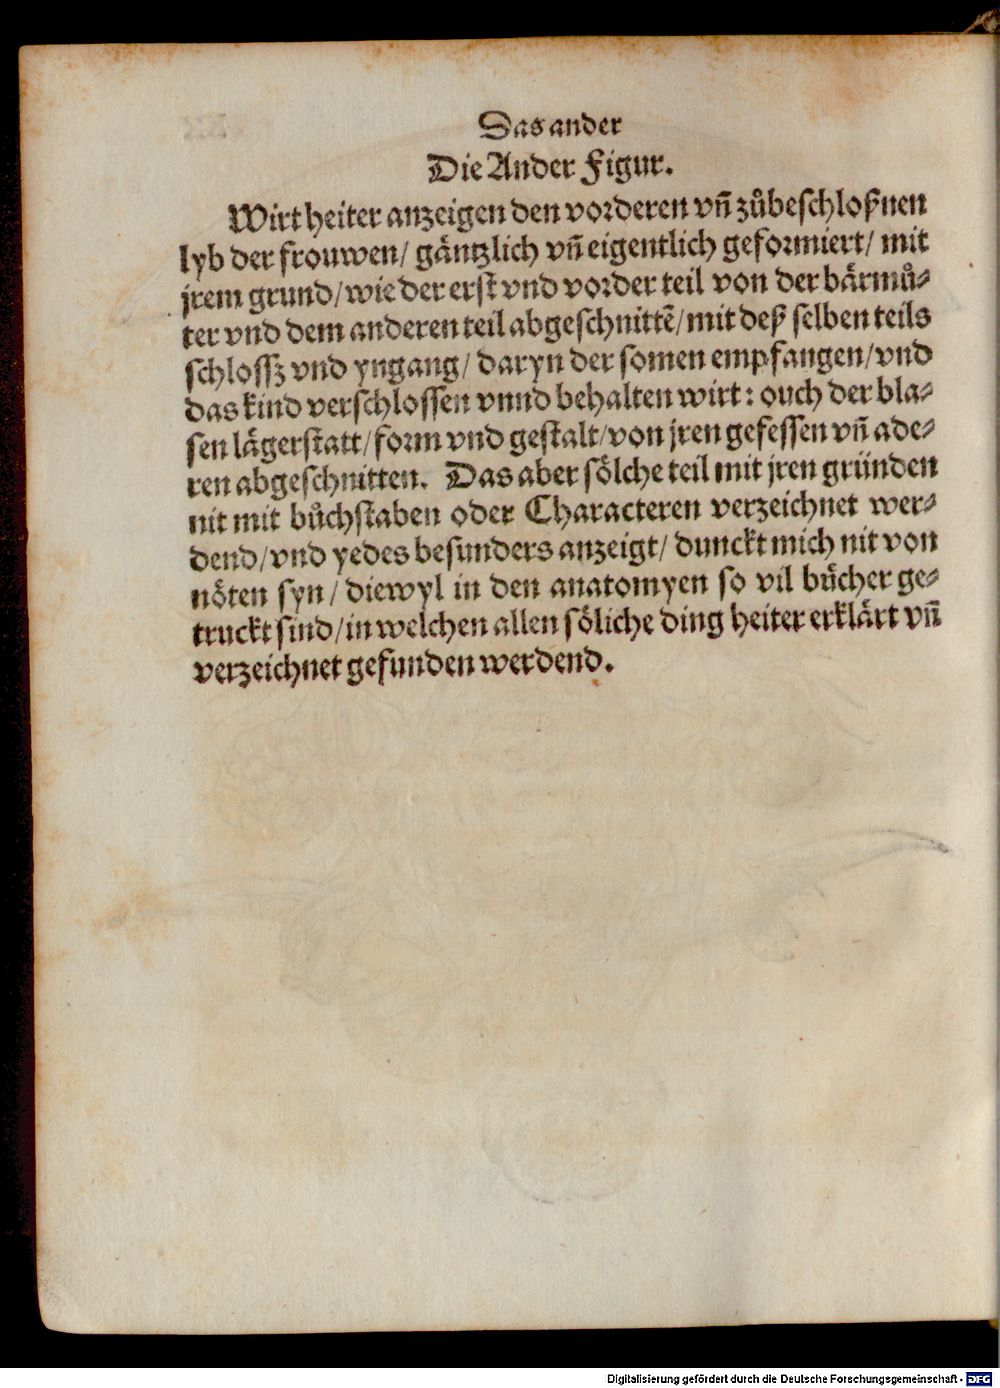 Das ander
Die Ander Figur.
Wirt heiter anzeigen den vorderen vñ zůbeschloßnen
lyb der frouwen/ gäntzlich vñ eigentlich geformiert/ mit
jrem grund/ wie der erst vnd vorder teil von der bärmů-
ter vnd dem anderen teil abgeschnittē/ mit deß selben teils
schlossz vnd yngang/ daryn der somen empfangen/ vnd
das kind verschlossen vnnd behalten wirt: ouch der bla-
sen lägerstatt/ form vnd gestalt/ von jren gefessen vñ ade-
ren abgeschnitten. Das aber sölche teil mit jren gründen
nit mit bůchstaben oder Characteren verzeichnet wer-
dend/ vnd yedes besunders anzeigt/ dunckt mich nit von
nöten syn/ diewyl in den anatomyen so vil bücher ge-
truckt sind/ in welchen allen söliche ding heiter erklärt vñ
verzeichnet gefunden werdend.
Digitalisierung gefördert durch die Deutsche Forschungsgemeinschaft - DFG